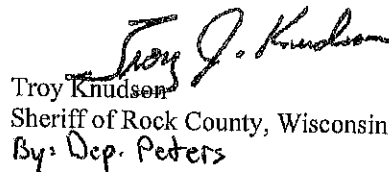 Troy J. Knudson
Troy Knudson
Sheriff of Rock County, Wisconsin
By: Dep. Peters